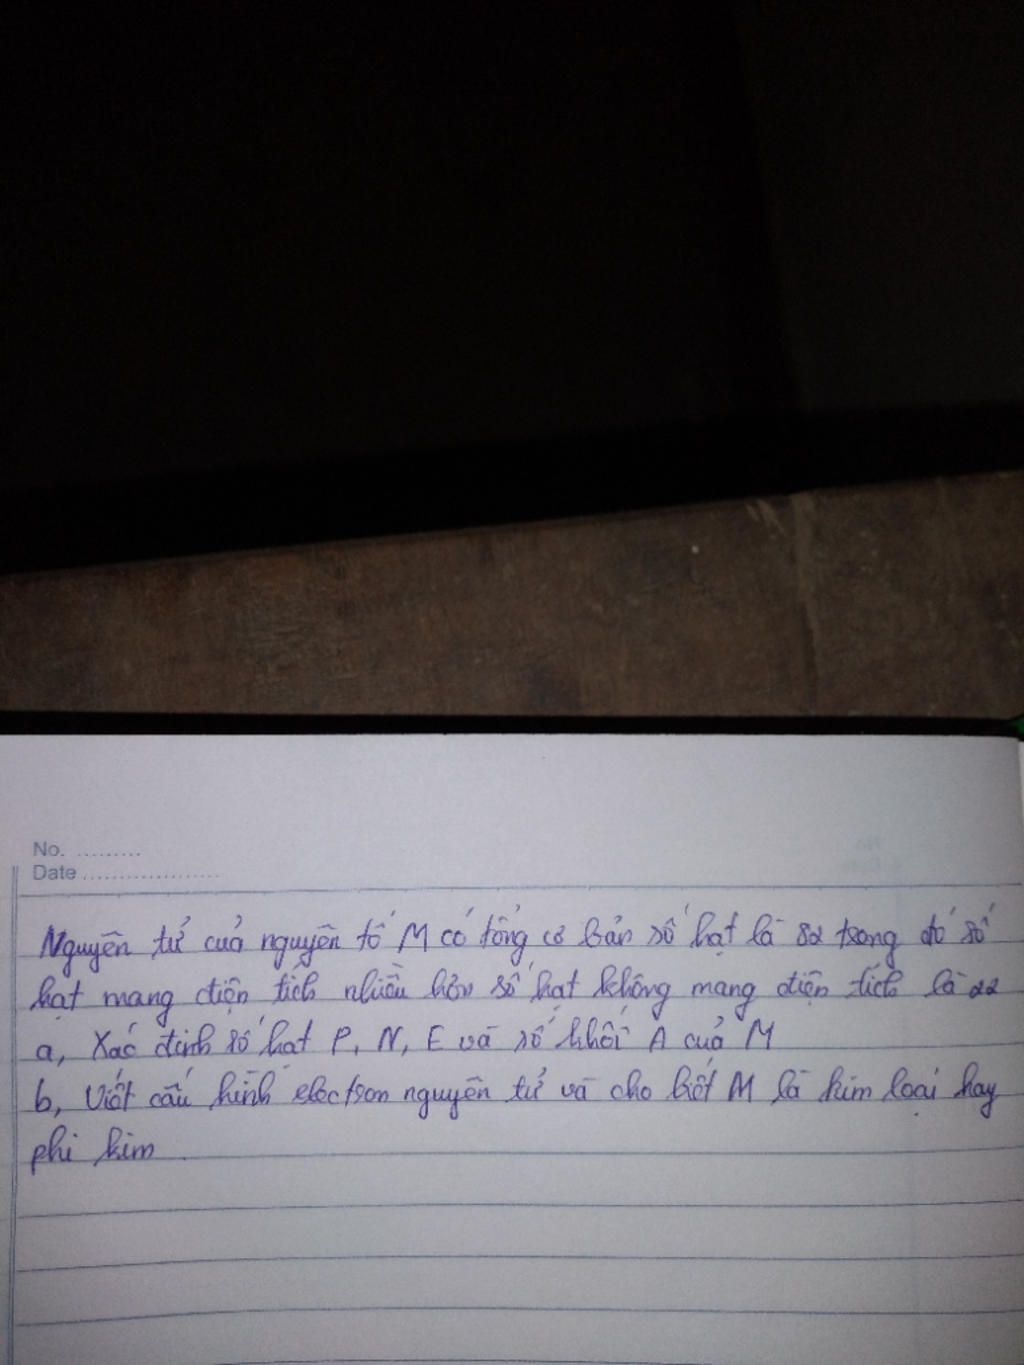 No. .........
Date ...................
Nguyên tử của nguyên tố M có tổng cơ bản số hạt là 82 trong đó số
hạt mang điện tích nhiều hơn số hạt không mang điện tích là 22
a, Xác định số hạt P, N, E và số khối A của M
b, Viết cấu hình electron nguyên tử và cho biết M là kim loại hay
phi kim